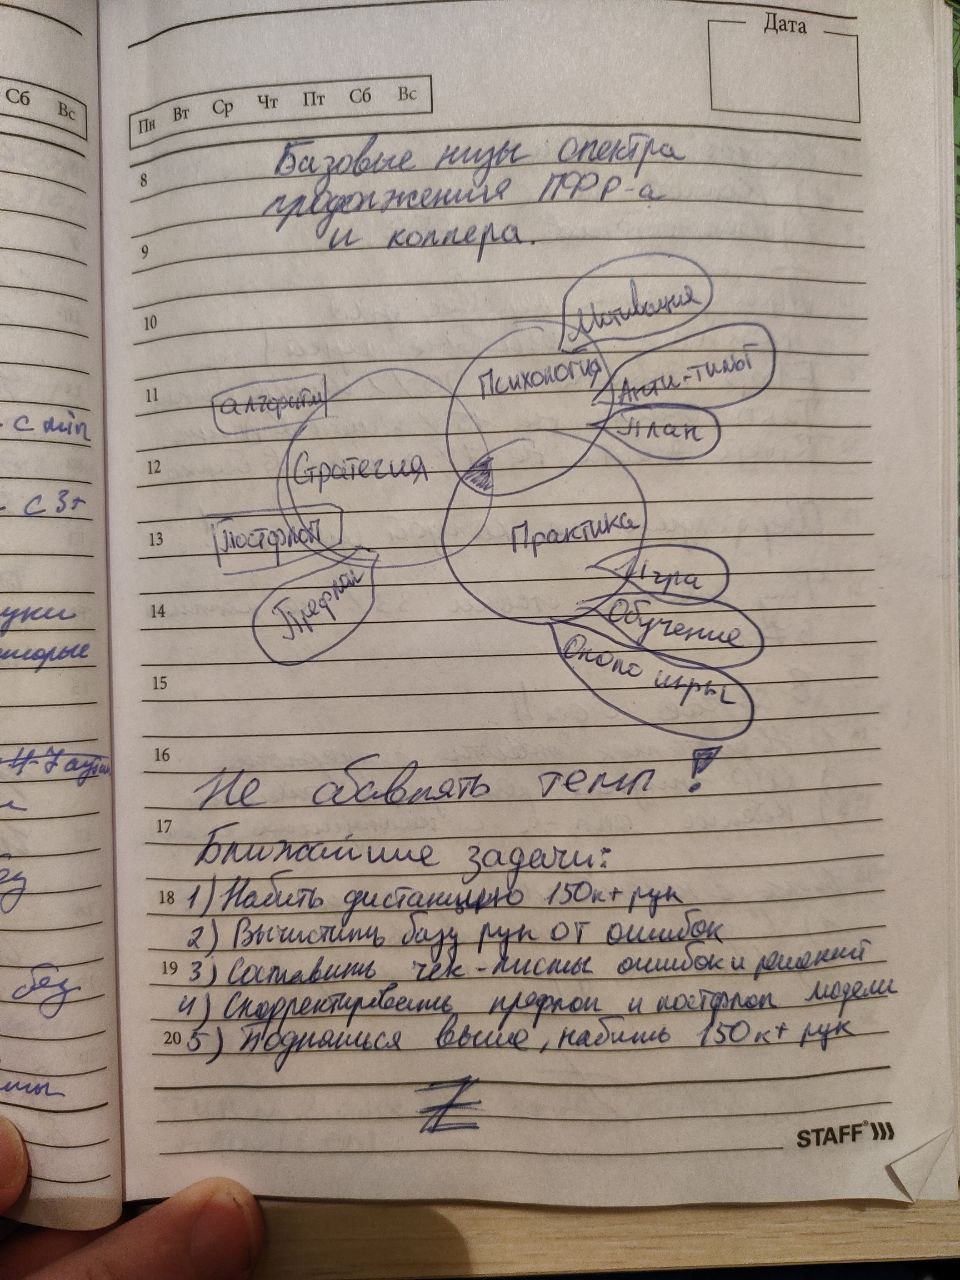 Сб Вс
Дата
Пн Вт Ср Чт Пт Сб Вс
Базовые низы спектра
продолжения ПФР-а
и коллера.
8
9
10
11
12
13
14
15
16
17
18
19
20
Мотивация
Психология
Анти-тилт
План
алгоритм
Стратегия
Постфлоп
Префлоп
Практика
Игра
Обучение
Около игры
с min
с 3+
Не сбавлять темп!
Ближайшие задачи:
1) Набить дистанцию 150к+ рук
2) Вычистить базу рук от ошибок
3) Составить чек-листы ошибок и решений
4) Скорректировать префлоп и постфлоп модели
5) Подняться выше, набить 150к+ рук
без
STAFF